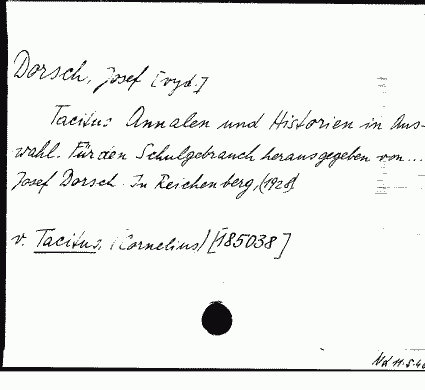 Dorsch, Josef [vyd.]
Tacitus Annalen und Historien in Aus-
wahl. Für den Schulgebrauch herausgegeben von ...
Josef Dorsch. In Reichenberg, (1928)
v. Tacitus, (Cornelius) [185038]